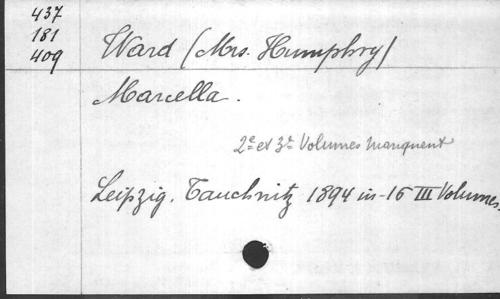 437
181
409
Ward (Mrs. Humphry)
Marcella.
2e et 3e Volumes manquent
Leipzig, Tauchnitz 1894 in-16 III Volumes.